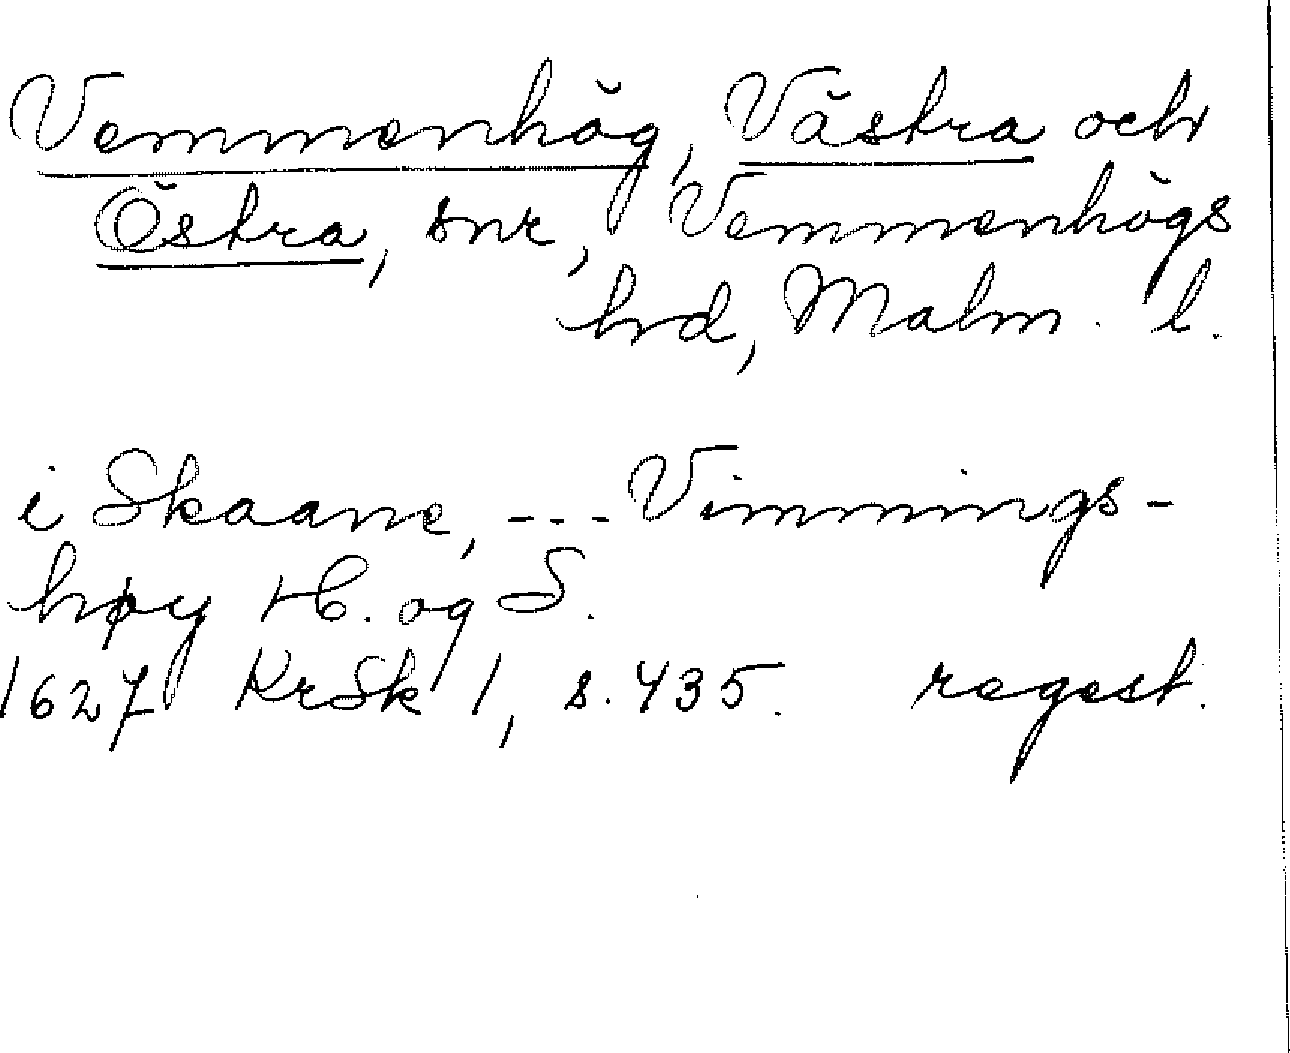 Vemmenhög, Västra och
Östra, snr, Vemmenhögs
hrd, Malm. l.
i Skaane, --- Vimmings-
høy H. og S.
1627 KrSk 1, s. 435. regest.